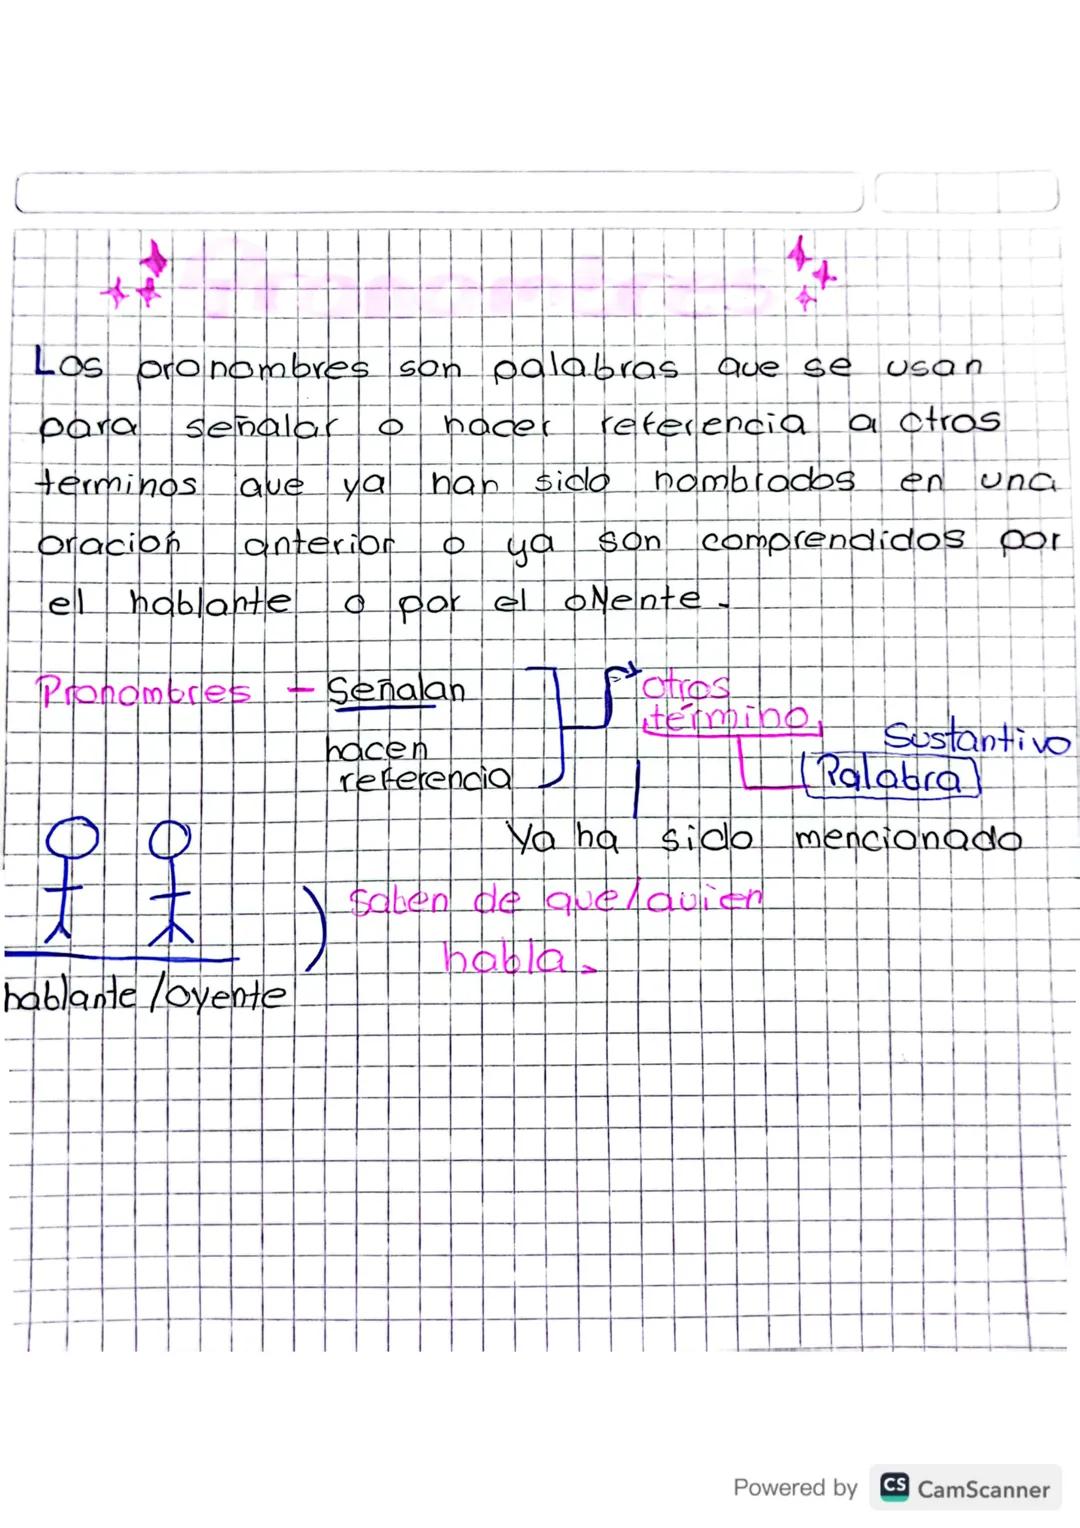 Pronombres
Los pronombres son palabras que se usan
para señalar o hacer referencia a otros
terminos que ya han sido nombrados en una
oración anterior o ya son comprendidos por
el hablante o por el oyente.
Pronombres - Señalan
hacen
referencia
otros
término
Sustantivo
Palabra
Ya ha sido mencionado
saben de que/quien
habla.
hablante/oyente
Powered by CS CamScanner